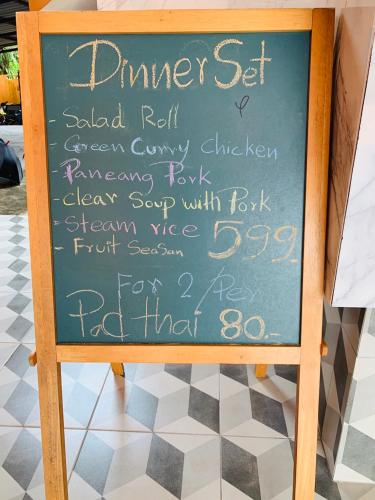 Dinner Set
- Salad Roll
- Green Curry Chicken
- Paneang Pork
- clear Soup with Pork
- Steam rice 599.-
- Fruit SeaSan
For 2/Per
Pad thai 80.-